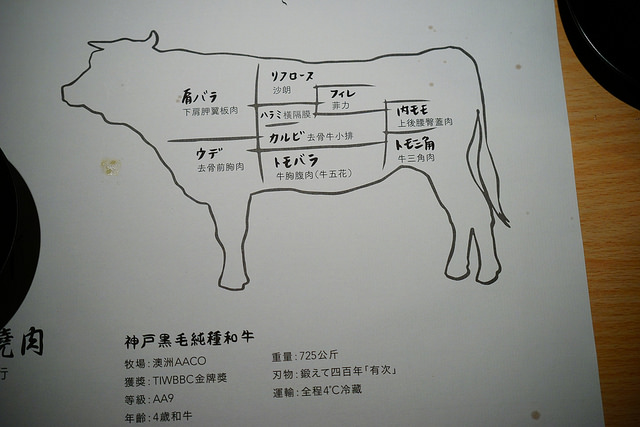 肩バラ
下肩胛翼板肉
リブロース
沙朗
フィレ
菲力
ハラミ 橫隔膜
カルビ 去骨牛小排
内モモ
上後腰臀蓋肉
ウデ
去骨前胸肉
トモバラ
牛胸腹肉(牛五花)
トモ三角
牛三角肉
燒肉
行
神戸黒毛純種和牛
牧場:澳洲AACO
獲獎:TIWBBC金牌獎
等級:AA9
年齡:4歲和牛
重量:725公斤
刃物:鍛えて四百年「有次」
運輸:全程4℃冷藏